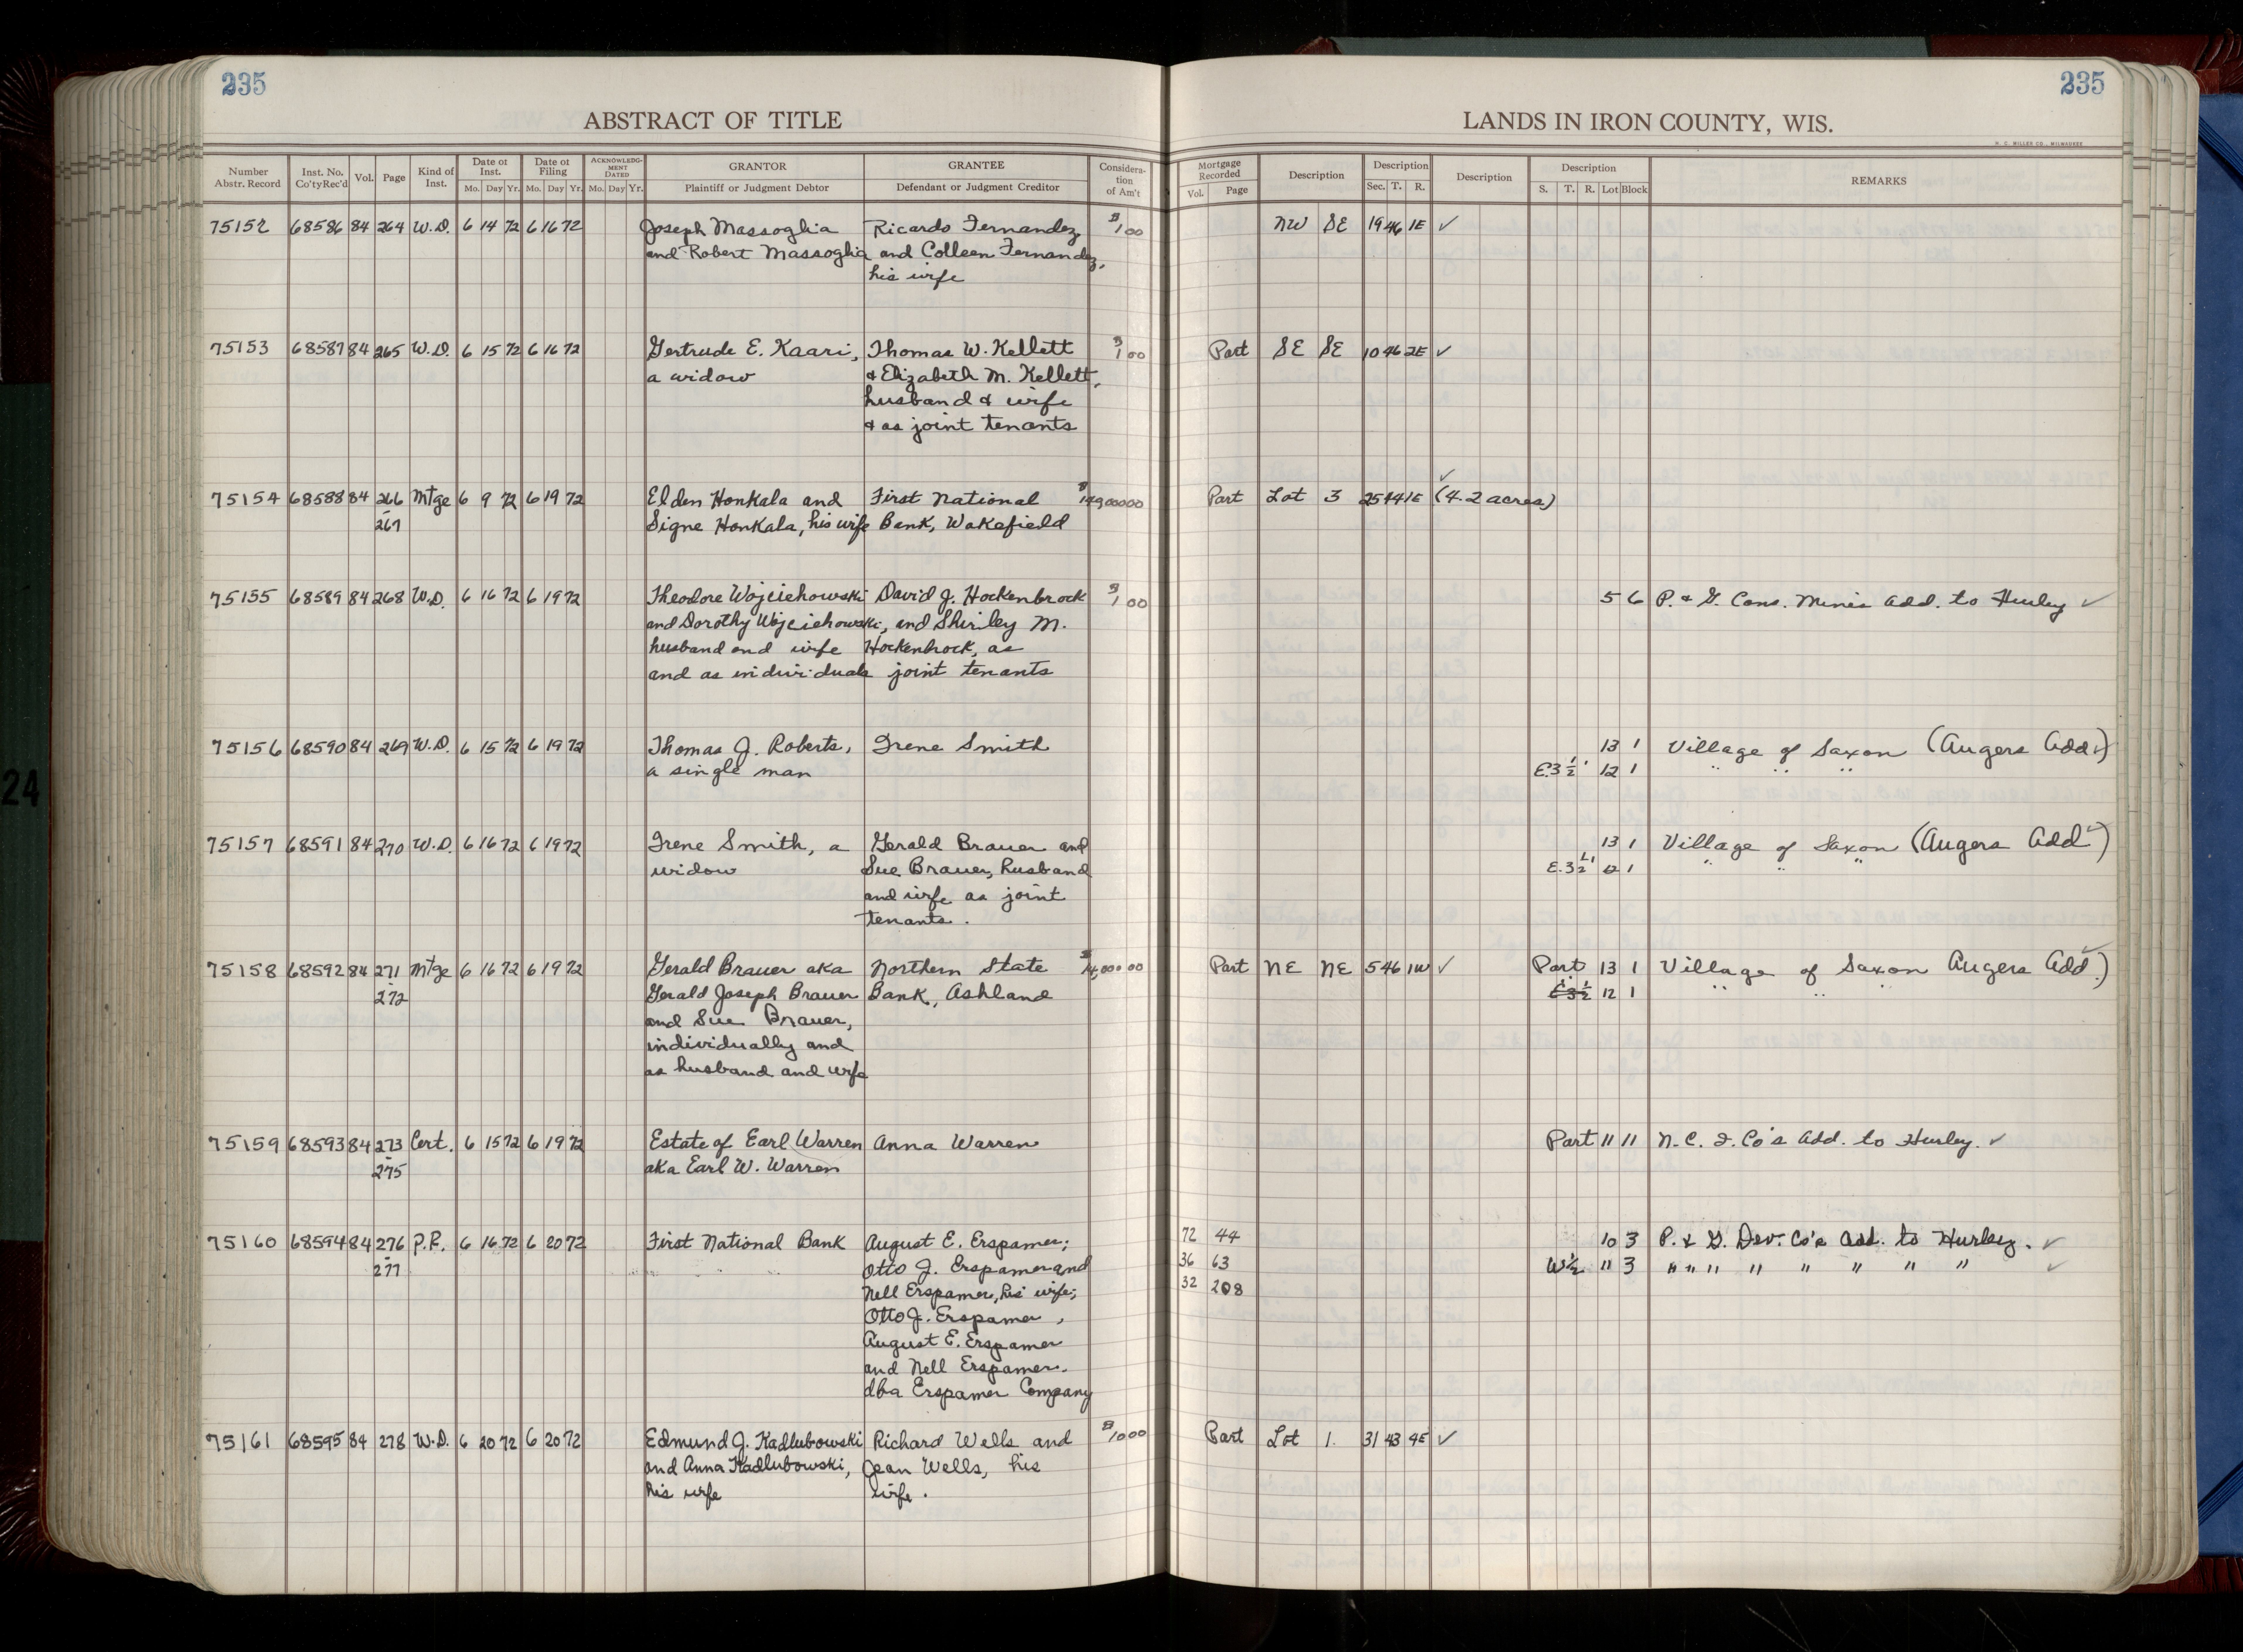 235
235
ABSTRACT OF TITLE
LANDS IN IRON COUNTY, WIS.
H. C. MILLER CO., MILWAUKEE
Number Abstr. Record | Inst. No. Co'ty Rec'd | Vol. | Page | Kind of Inst. | Date of Inst. Mo. Day Yr. | Date of Filing Mo. Day Yr. | ACKNOWLEDGMENT DATED Mo. Day Yr. | GRANTOR Plaintiff or Judgment Debtor | GRANTEE Defendant or Judgment Creditor | Consideration of Am't | Mortgage Recorded Vol. Page | Description | Description Sec. T. R. | Description | Description S. T. R. Lot Block | REMARKS
75152 68586 84 264 W.D. 6 14 72 6 16 72 Joseph Massoglia Ricardo Fernandez $1 00 NW SE 19 46 1E ✓
and Robert Massoglia and Colleen Fernandez,
his wife
75153 68587 84 265 W.D. 6 15 72 6 16 72 Gertrude E. Kaari, Thomas W. Kellett $1 00 Part SE SE 10 46 2E ✓
a widow & Elizabeth M. Kellett,
husband & wife
& as joint tenants
75154 68588 84 266 Mtge 6 9 72 6 19 72 Elden Honkala and First National Part Lot 3 25 44 1E (4.2 acres) ✓
- 267 Signe Honkala, his wife Bank, Wakefield
75155 68589 84 268 W.D. 6 16 72 6 19 72 Theodore Wojciehowski David J. Hockenbrock $1 00 5 6 P. & G. Cons. Mines Add. to Hurley ✓
and Dorothy Wojciehowski, and Shirley M.
husband and wife Hockenbrock, as
and as individuals joint tenants
75156 68590 84 269 W.D. 6 15 72 6 19 72 Thomas J. Roberts, Irene Smith 13 1 Village of Saxon (Angers Add ✓)
a single man E. 3 1/2' 12 1 " " "
75157 68591 84 270 W.D. 6 16 72 6 19 72 Irene Smith, a Gerald Brauer and 13 1 Village of Saxon (Angers Add ✓)
widow Sue Brauer, husband E. 3 1/2' 1 " " "
and wife as joint
tenants.
75158 68592 84 271 Mtge 6 16 72 6 19 72 Gerald Brauer aka Northern State $14,000 00 Part NE NE 5 46 1W ✓ Part 13 1 Village of Saxon Angers Add ✓)
- 272 Gerald Joseph Brauer Bank, Ashland E 3 1/2 12 1 " " "
and Sue Brauer,
individually and
as husband and wife
75159 68593 84 273 Cert. 6 15 72 6 19 72 Estate of Earl Warren Anna Warren Part 11 11 N. C. I. Co's Add. to Hurley. ✓
- 275 aka Earl W. Warren
75160 68594 84 276 P.R. 6 16 72 6 20 72 First National Bank August E. Erspamer; 72 44 10 3 P. & G. Dev. Co's Add. to Hurley. ✓
- 277 Otto J. Erspamer and 36 63 W 1/2 11 3 " " " " " " " " ✓
Nell Erspamer, his wife; 32 208
Otto J. Erspamer,
August E. Erspamer
and Nell Erspamer.
dba Erspamer Company
75161 68595 84 278 W.D. 6 20 72 6 20 72 Edmund J. Kadlubowski Richard Wells and $10 00 Part Lot 1. 31 43 4E ✓
and Anna Kadlubowski, Jean Wells, his
his wife wife.
24